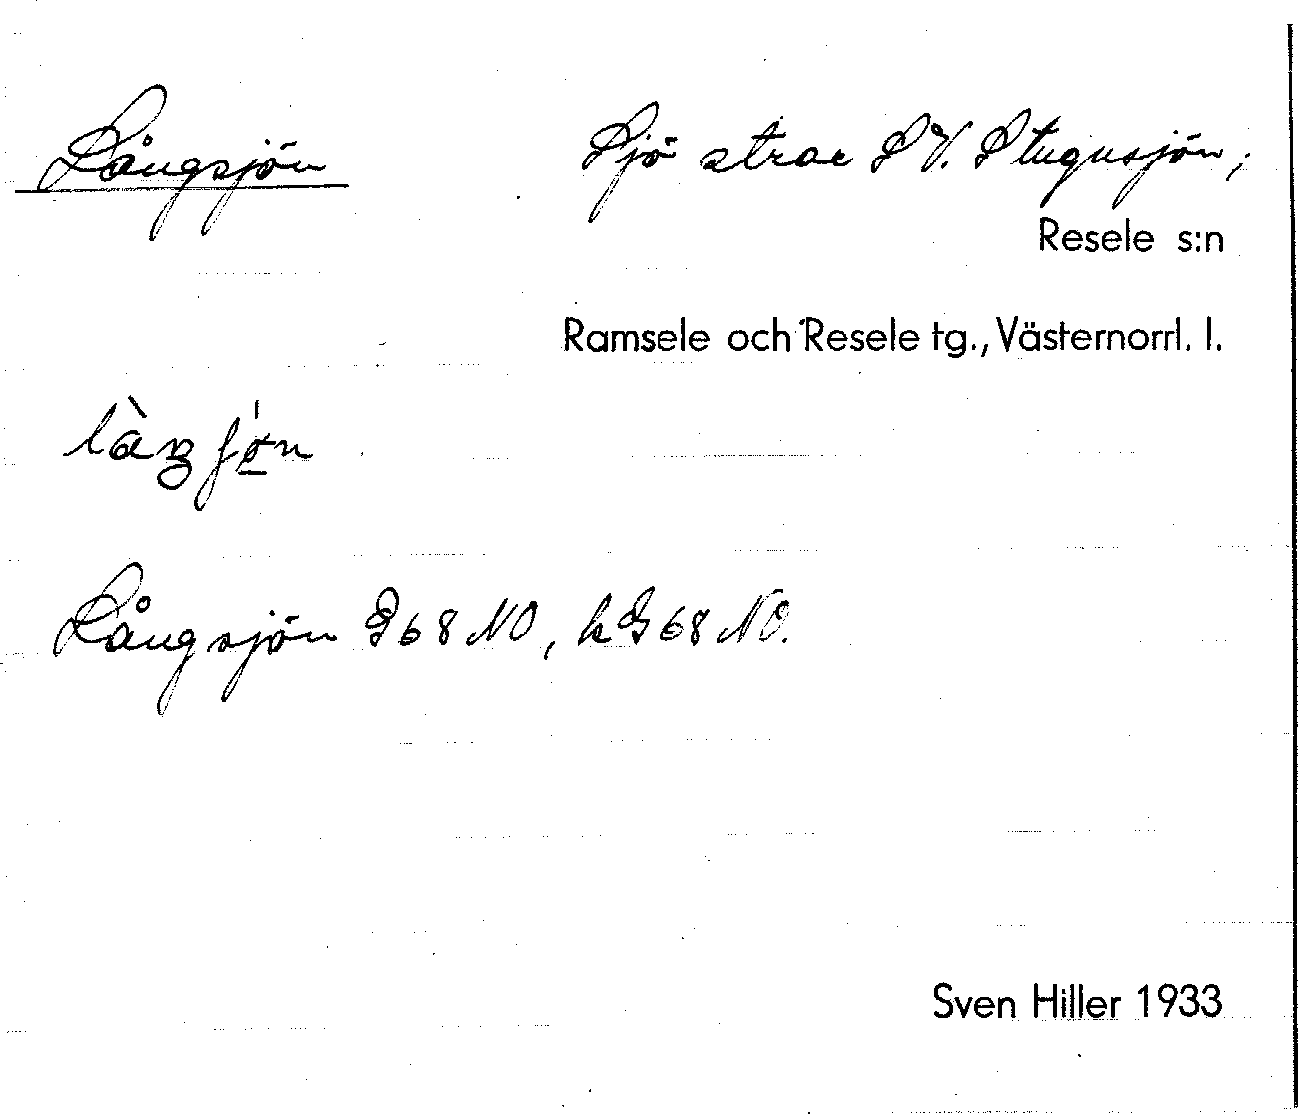 Långsjön
Sjö strax SV. Stugusjön;
Resele s:n
Ramsele och Resele tg., Västernorrl. l.
Långsjön G68 NO, k G68 NO.
Sven Hiller 1933